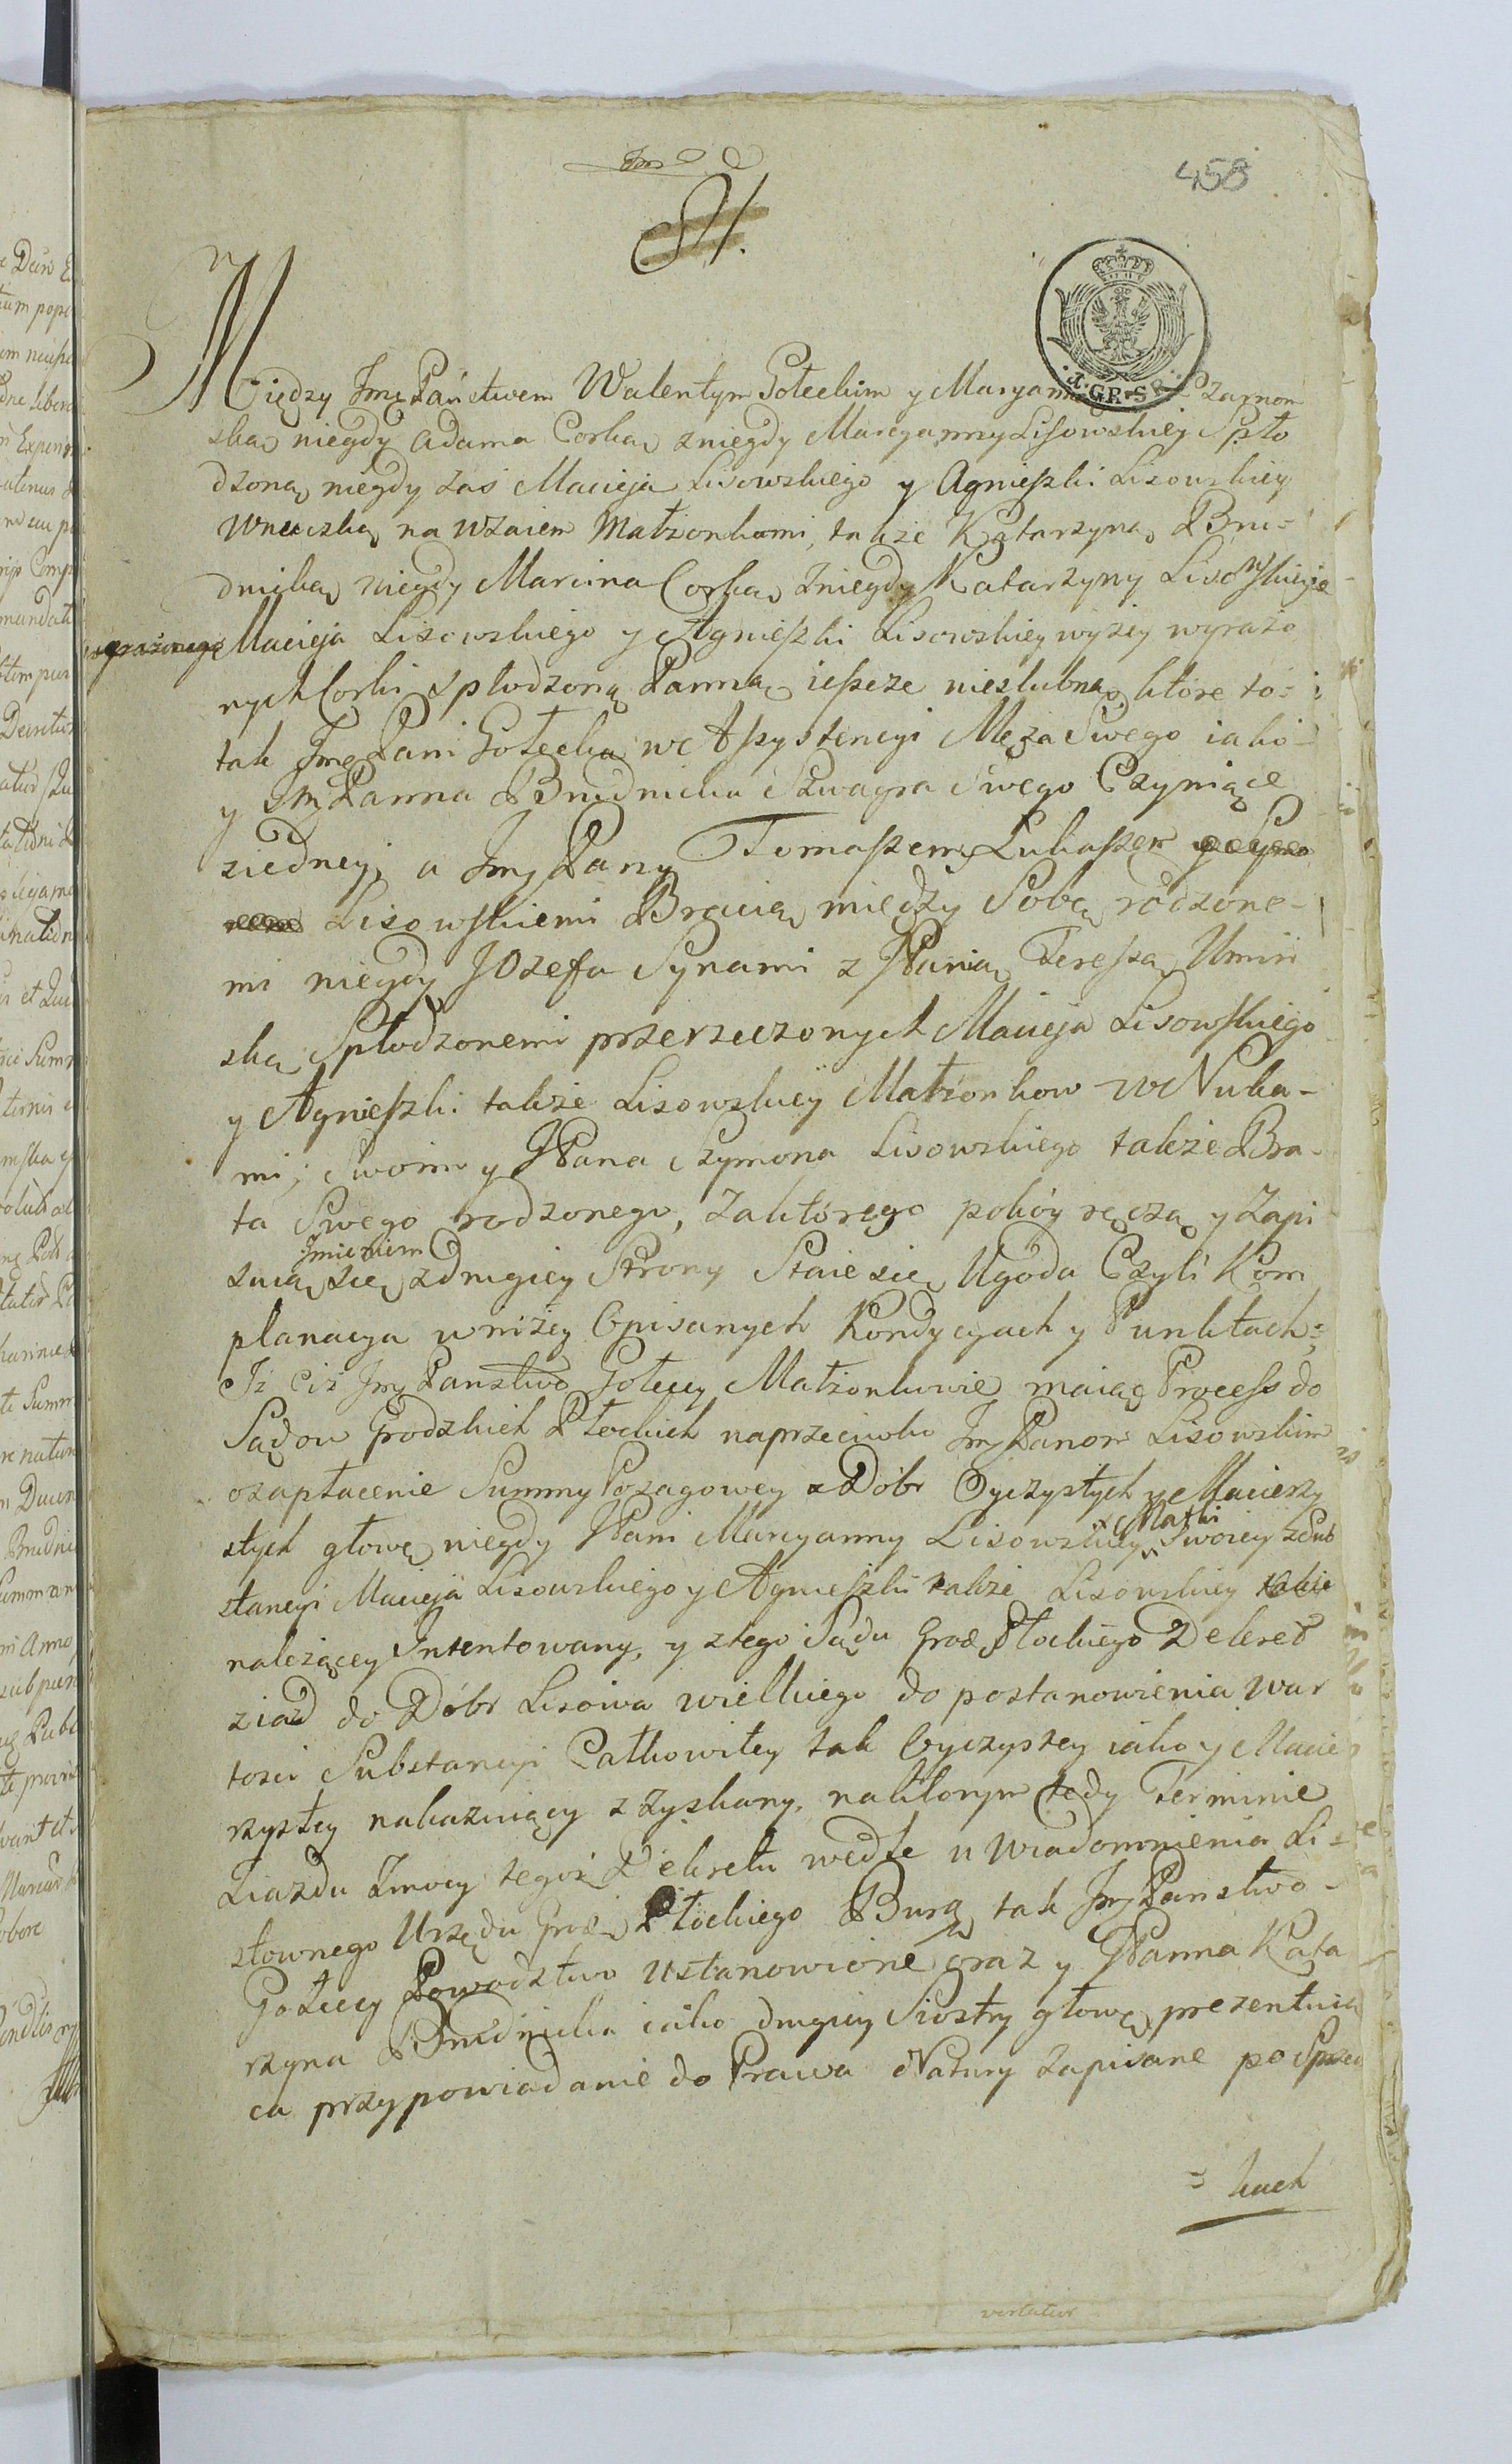 458
Między Jmę Państwem Walentym Gołeckim y Maryanną Czarnom
ską niegdy Adama Corką zniegdy Maryanny Lisowskiey Spło
dzoną niegdy zaś Macieja Lisowskiego y Agnieszki Lisowskiey
Wnuczką na wzaiem Małżonkami, także Katarzyną Bru-
dnicką niegdy Marcina Corką zniegdy Katarzyny Lisowskiey
Macieja Lisowskiego y Agnieszki Lisowskiey wyżey wyrażo
nych Corki spłodzoną Panną ieszcze nieślubną, które to-
tak Jmę Pani Gołecka w Assystencyi Męża Swego iako-
y Jmę Panna Brudnicka Szwagra Swego Czyniące
ziedney, a Jmę Pany Tomaszem, Łukaszem
Lisowskiemi Bracią między Sobą rodzone-
mi niegdy Jozefa Synami z JPanią Teressą Umiń
ską Spłodzonemi przerzeczonych Macieja Lisowskiego
y Agnieszki także Lisowskiey Małżonkow Wnuka-
mi; Swoim y JPana Szymona Lisowskiego także Bra-
ta Swego rodzonego, zaktórego pokóy ręczą y Zapi
Jmieniem
suią się zdrugiey Strony Staie się Ugoda Czyli Kom
planacya w niżey Opisanych Kondycyach y Punktach:
Iż ciż Jmę Panstwo Gołeccy Małżonkowie maiąc Process do
Sądow Grodzkich Płockich naprzeciwko Jmę Panom Lisowskim
ozapłacenie Summy Posagowey z Dóbr Oyczystych y Macierzy
stych głowę niegdy JPani Maryanny Lisowskiey Matki Swoiey z Sub
stancyi Macieja Lisowskiego y Agnieszki także Lisowskiey
należącey Intentowany, y ztego Sądu Grod. Płockiego Dekret
ziazd do Dóbr Lisowa wielkiego do postanowienia War
tości Substancyi Całkowitey tak Oyczystey iako y Macie
rzystey nakazuiący zzyskany, naktórym tedy Terminie
Ziazdu Zmocy tegoż Dekretu wedle uwiadomnienia Li-
stownego Urzędu Grod. Płockiego Burg. tak Jmę Panstwo-
Gołeccy Powodztwo Ustanowione oraz y JPanna Kata
rzyna Brudnicka iako drugiey Siostry głowę prezentuią
ca przypowiadanie do Prawa Natury Zapisane po Sprze
= kach
vertatur